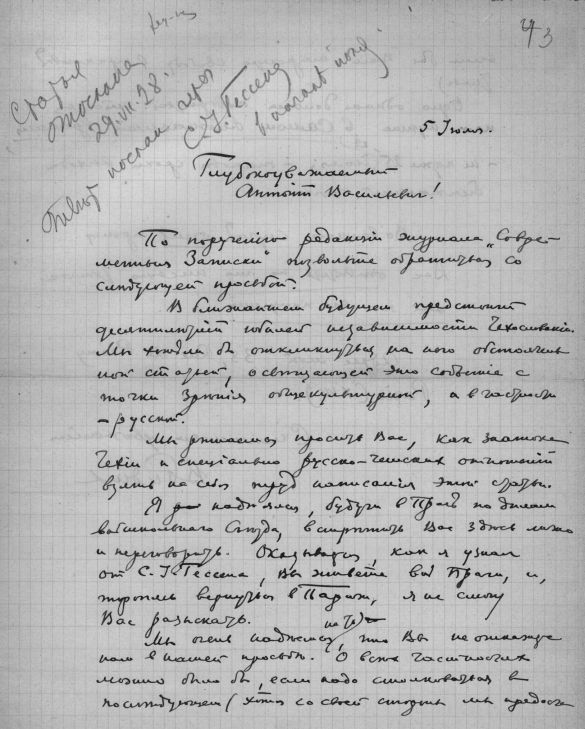 43
Статья
отослана
29.VII.28.
Ответ послан через
С. І. Гессена
5 Іюля.
Глубокоуважаемый
Антонін Васильевич!
По порученію редакціи журнала "Совре
менныя Записки" позвольте обратиться со
слѣдующей просьбой.
В ближайшем будущем предстоит
десятилѣтній юбилей независимости Чехословакіи.
Мы хотѣли бы откликнуться на него обстоятель
ной статьей, освѣщающей это событіе с
точки зрѣнія общекультурной, а в частности
– русской.
Мы рѣшаемся просить Вас, как знатока
Чехіи и спеціально русско-чешских отношеній
взять на себя труд написанія этой статьи.
Я надѣялся, будучи в Прагѣ по дѣлам
Съѣзда, встрѣтить Вас здѣсь лично
и переговорить. Оказывается, как я узнал
от С. І. Гессена, Вы живете внѣ Праги, и,
торопясь вернуться в Париж, я не смогу
Вас разыскать.
Мы очень надѣемся, что Вы не откажете
нам в нашей просьбѣ. О всѣх частностях
можно было бы, если надо столковаться в
послѣдующем (хотя со своей стороны мы предоста